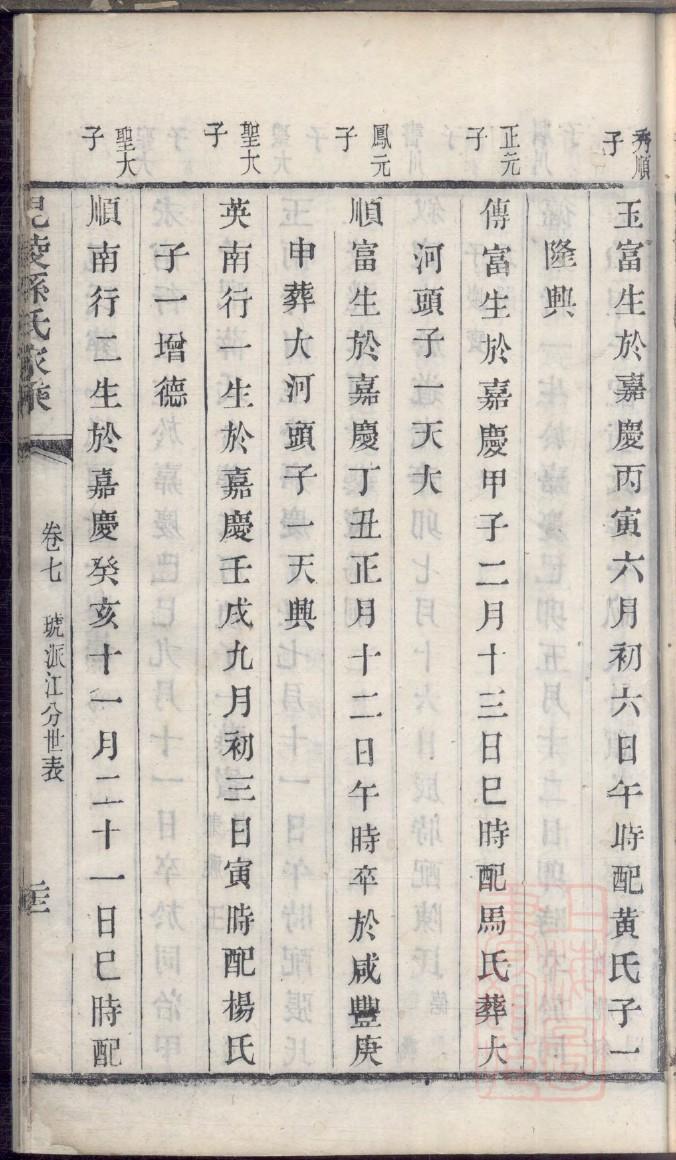 秀順子
玉富生於嘉慶丙寅六月初六日午時配黃氏子一
隆興
正元子
傳富生於嘉慶甲子二月十三日巳時配馬氏葬大
河頭子一天大
鳳元子
順富生於嘉慶丁丑正月十二日午時卒於咸豐庚
申葬大河頭子一天興
聖大子
英南行一生於嘉慶壬戌九月初三日寅時配楊氏
子一增德
聖大子
順南行二生於嘉慶癸亥十一月二十一日巳時配
陵孫氏家乘
卷七 琥派江分世表